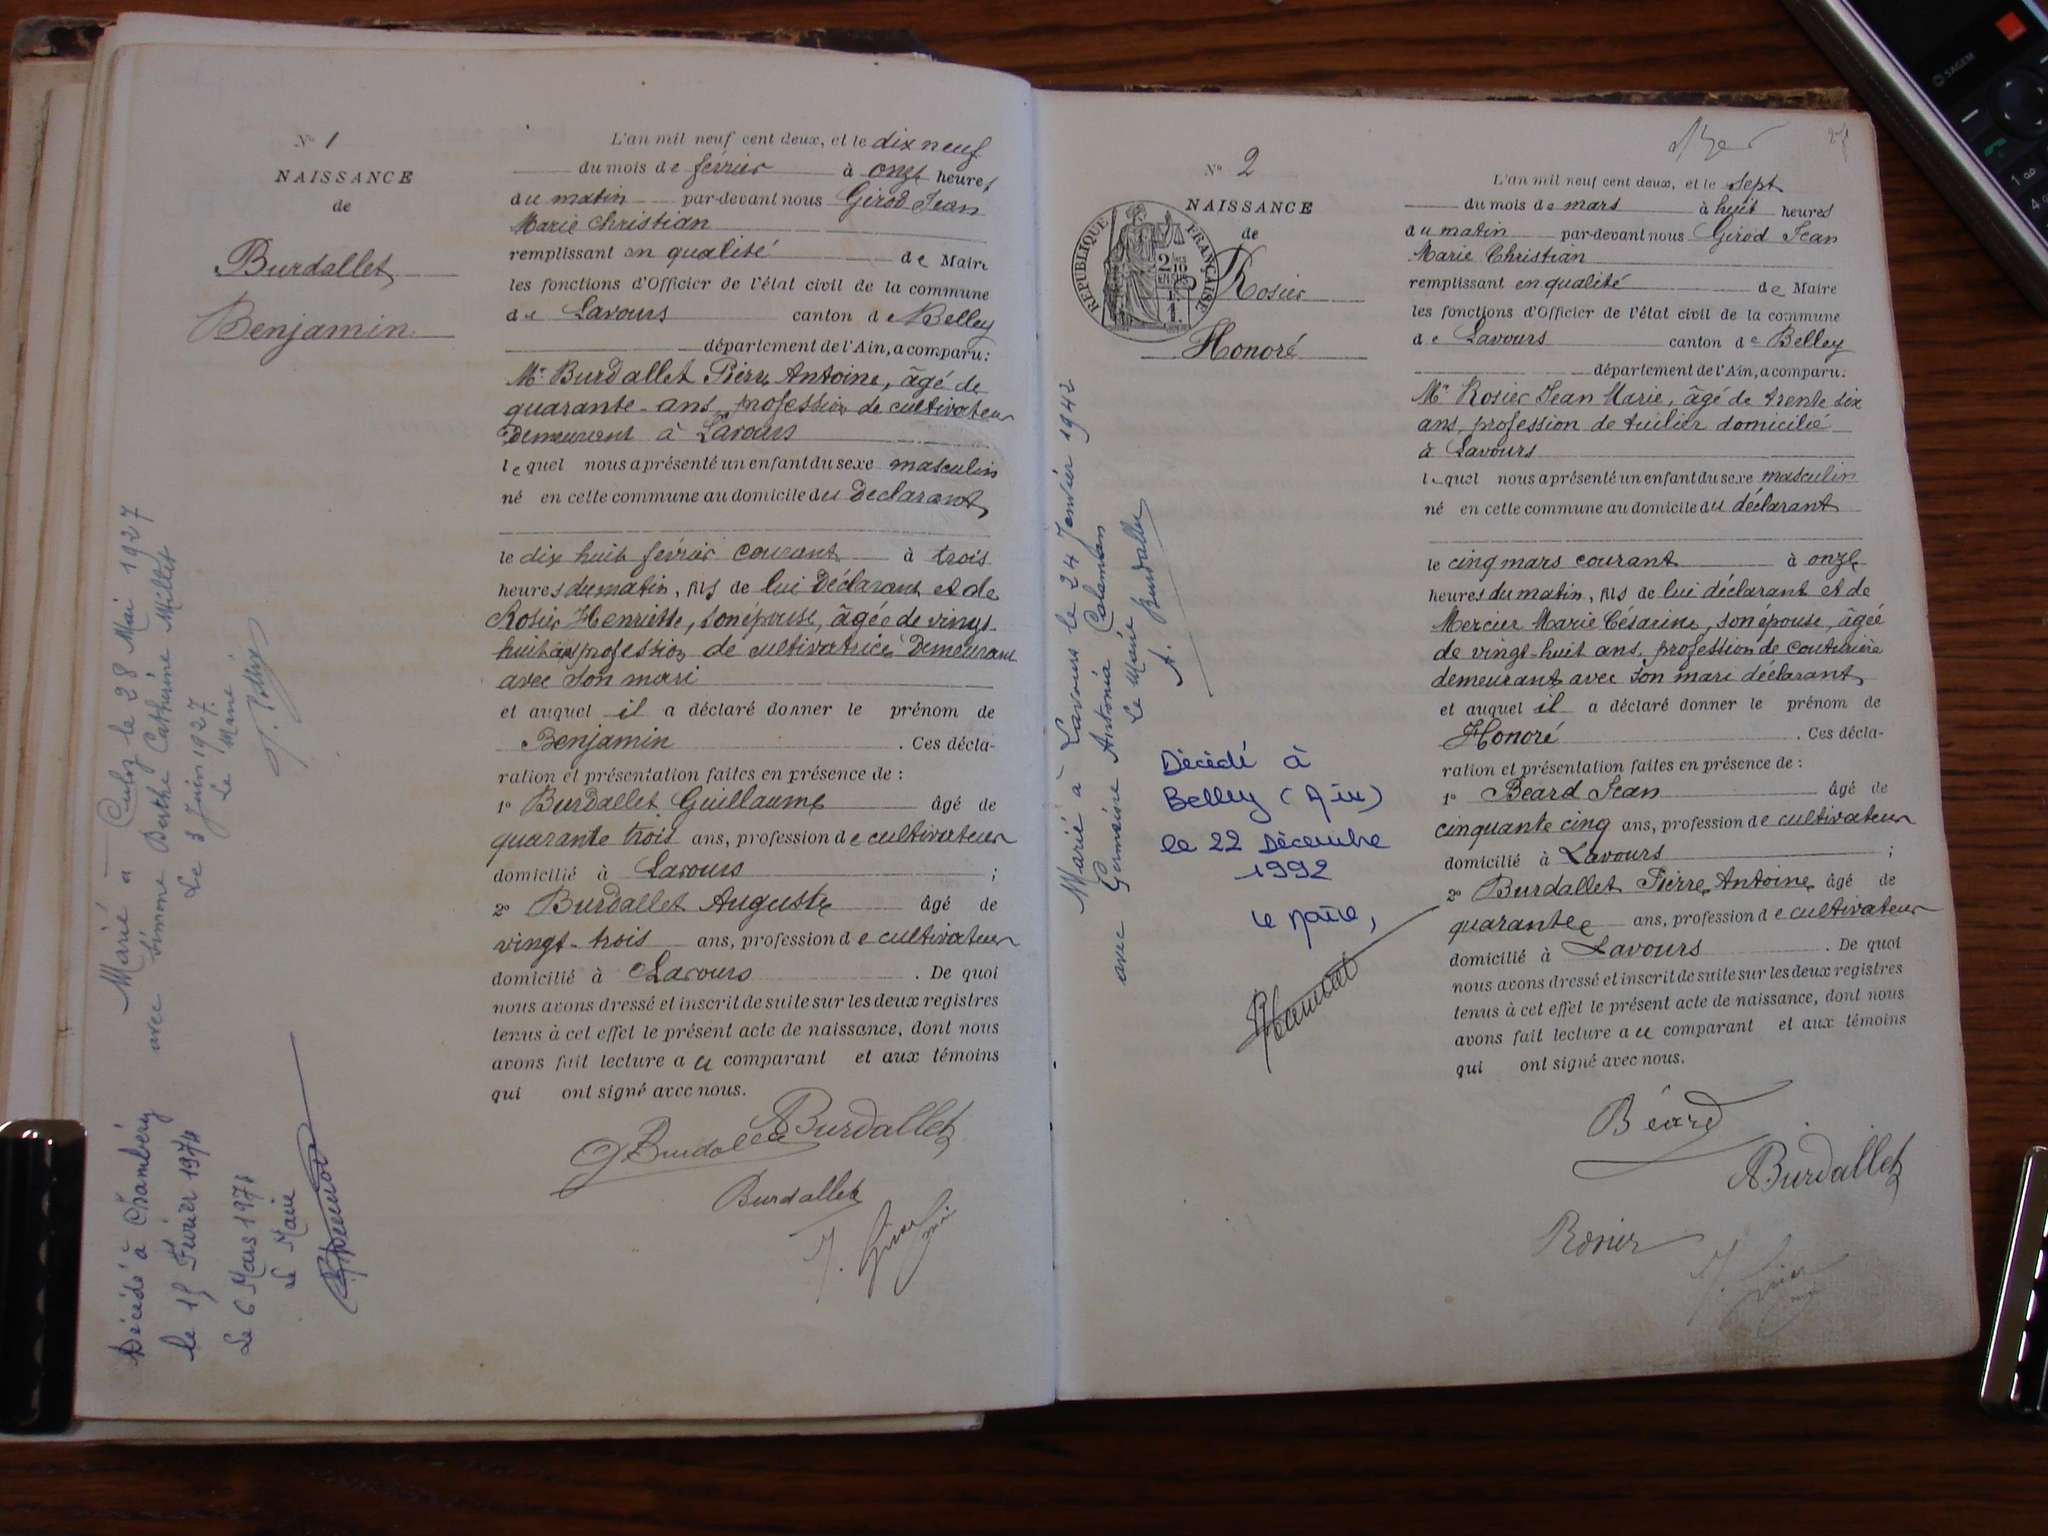 N° 1
NAISSANCE
de
Burdallet
Benjamin
L'an mil neuf cent deux, et le dix neuf
du mois de février à onze heures
du matin par-devant nous Girod Jean
Marie Christian
remplissant en qualité de Maire
les fonctions d'Officier de l'état civil de la commune
de Lavours canton de Belley
département de l'Ain, a comparu:
Mr Burdallet Pierre Antoine, âgé de
quarante ans, profession de cultivateur
demeurant à Lavours
lequel nous a présenté un enfant du sexe masculin
né en cette commune au domicile du déclarant
le dix huit février courant à trois
heures du matin, fils de lui déclarant et de
Rosier Henriette, son épouse, âgée de vingt
huit ans profession de cultivatrice demeurant
avec son mari
et auquel il a déclaré donner le prénom de
Benjamin . Ces décla-
ration et présentation faites en présence de :
1° Burdallet Guillaume âgé de
quarante trois ans, profession de cultivateur
domicilié à Lavours ;
2° Burdallet Auguste âgé de
vingt-trois ans, profession de cultivateur
domicilié à Lavours . De quoi
nous avons dressé et inscrit de suite sur les deux registres
tenus à cet effet le présent acte de naissance, dont nous
avons fait lecture au comparant et aux témoins
qui ont signé avec nous.
G Burdallet ABurdallet
Burdallet
Marié à Culoz le 28 Mai 1927
avec Simone Berthe Catherine Millet
Le 3 Juin 1927
Le Maire
Décédé à Chambéry
le 15 Février 1974
Le 6 Mars 1974
Le Maire
N° 2
NAISSANCE
de
Rosier
Honoré
RÉPUBLIQUE FRANÇAISE
L'an mil neuf cent deux, et le sept
du mois de mars à huit heures
du matin par-devant nous Girod Jean
Marie Christian
remplissant en qualité de Maire
les fonctions d'Officier de l'état civil de la commune
de Lavours canton de Belley
département de l'Ain, a comparu:
Mr Rosier Jean Marie, âgé de trente six
ans, profession de tuilier domicilié
à Lavours
lequel nous a présenté un enfant du sexe masculin
né en cette commune au domicile du déclarant
le cinq mars courant à onze
heures du matin, fils de lui déclarant et de
Mercier Marie Césarine, son épouse, âgée
de vingt-huit ans, profession de couturière
demeurant avec son mari déclarant
et auquel il a déclaré donner le prénom de
Honoré . Ces décla-
ration et présentation faites en présence de :
1° Béard Jean âgé de
cinquante cinq ans, profession de cultivateur
domicilié à Lavours ;
2° Burdallet Pierre Antoine âgé de
quarante ans, profession de cultivateur
domicilié à Lavours . De quoi
nous avons dressé et inscrit de suite sur les deux registres
tenus à cet effet le présent acte de naissance, dont nous
avons fait lecture au comparant et aux témoins
qui ont signé avec nous.
Béard
ABurdallet
Rosier
Marié à Lavours le 24 Janvier 1942
avec Germaine Antonia
Le Maire
A. Burdallet
Décédé à
Belley (Ain)
le 22 Décembre
1992
Le Maire,
SAGEM